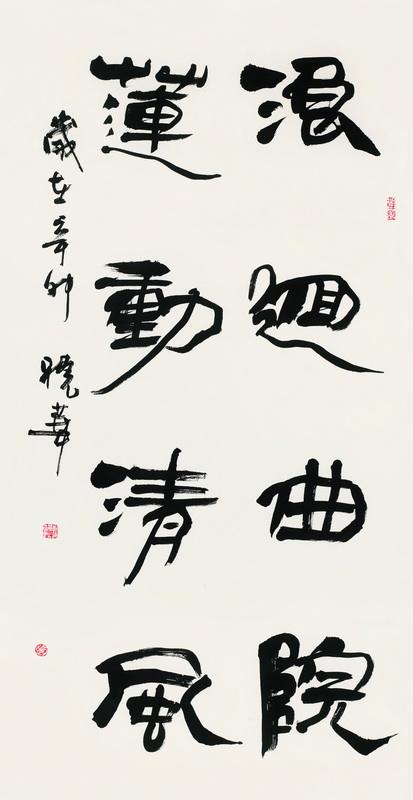 浪迴曲院
蓮動清風
歲在辛卯 曉華